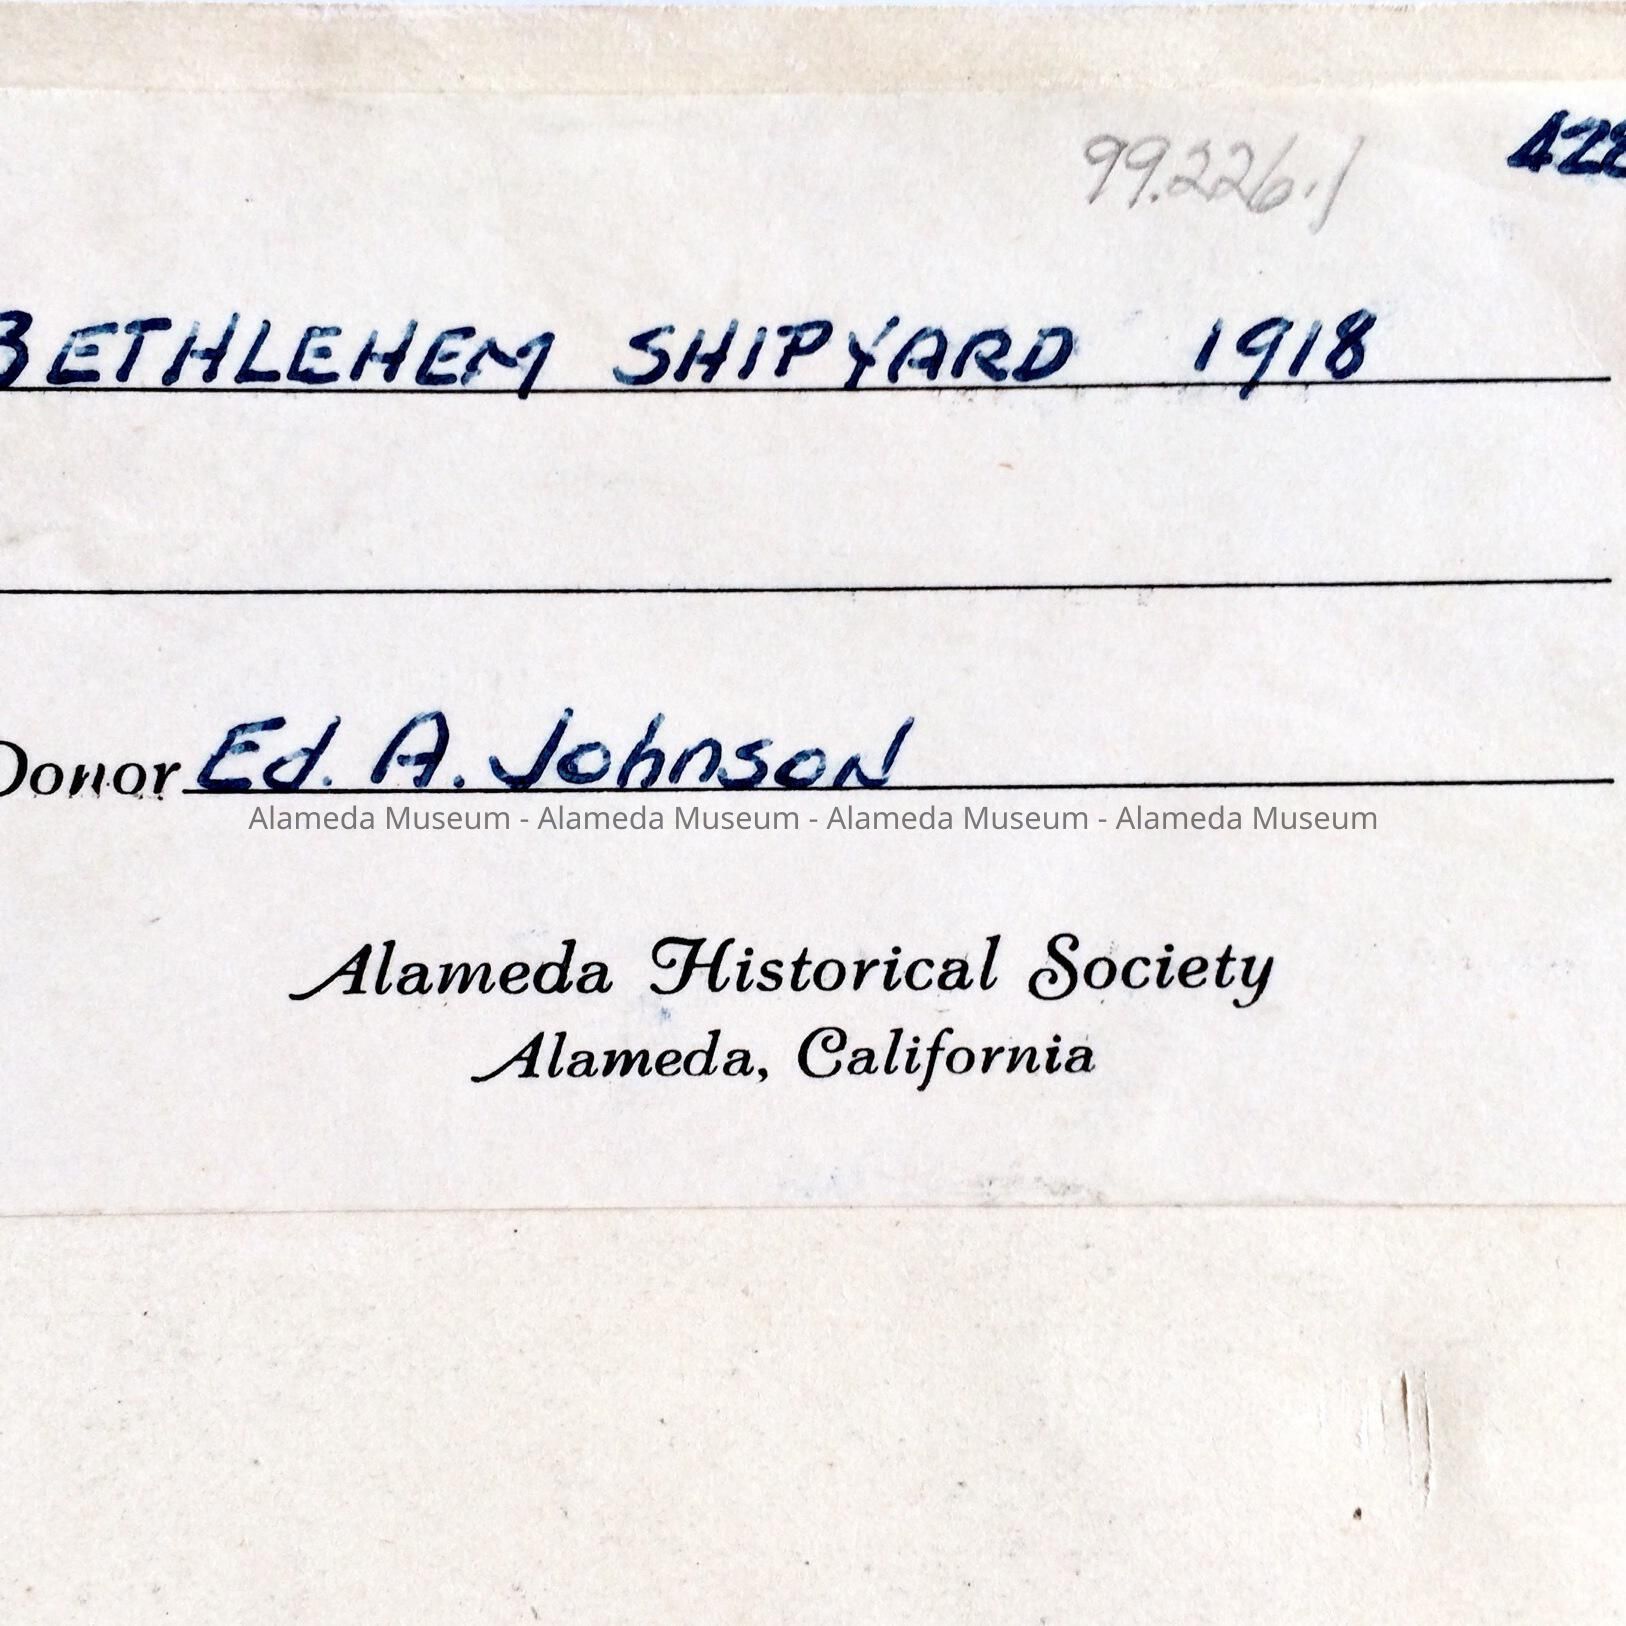 99.226.1
428
BETHLEHEM SHIPYARD 1918
Donor Ed. A. Johnson
Alameda Museum - Alameda Museum - Alameda Museum - Alameda Museum
Alameda Historical Society
Alameda, California